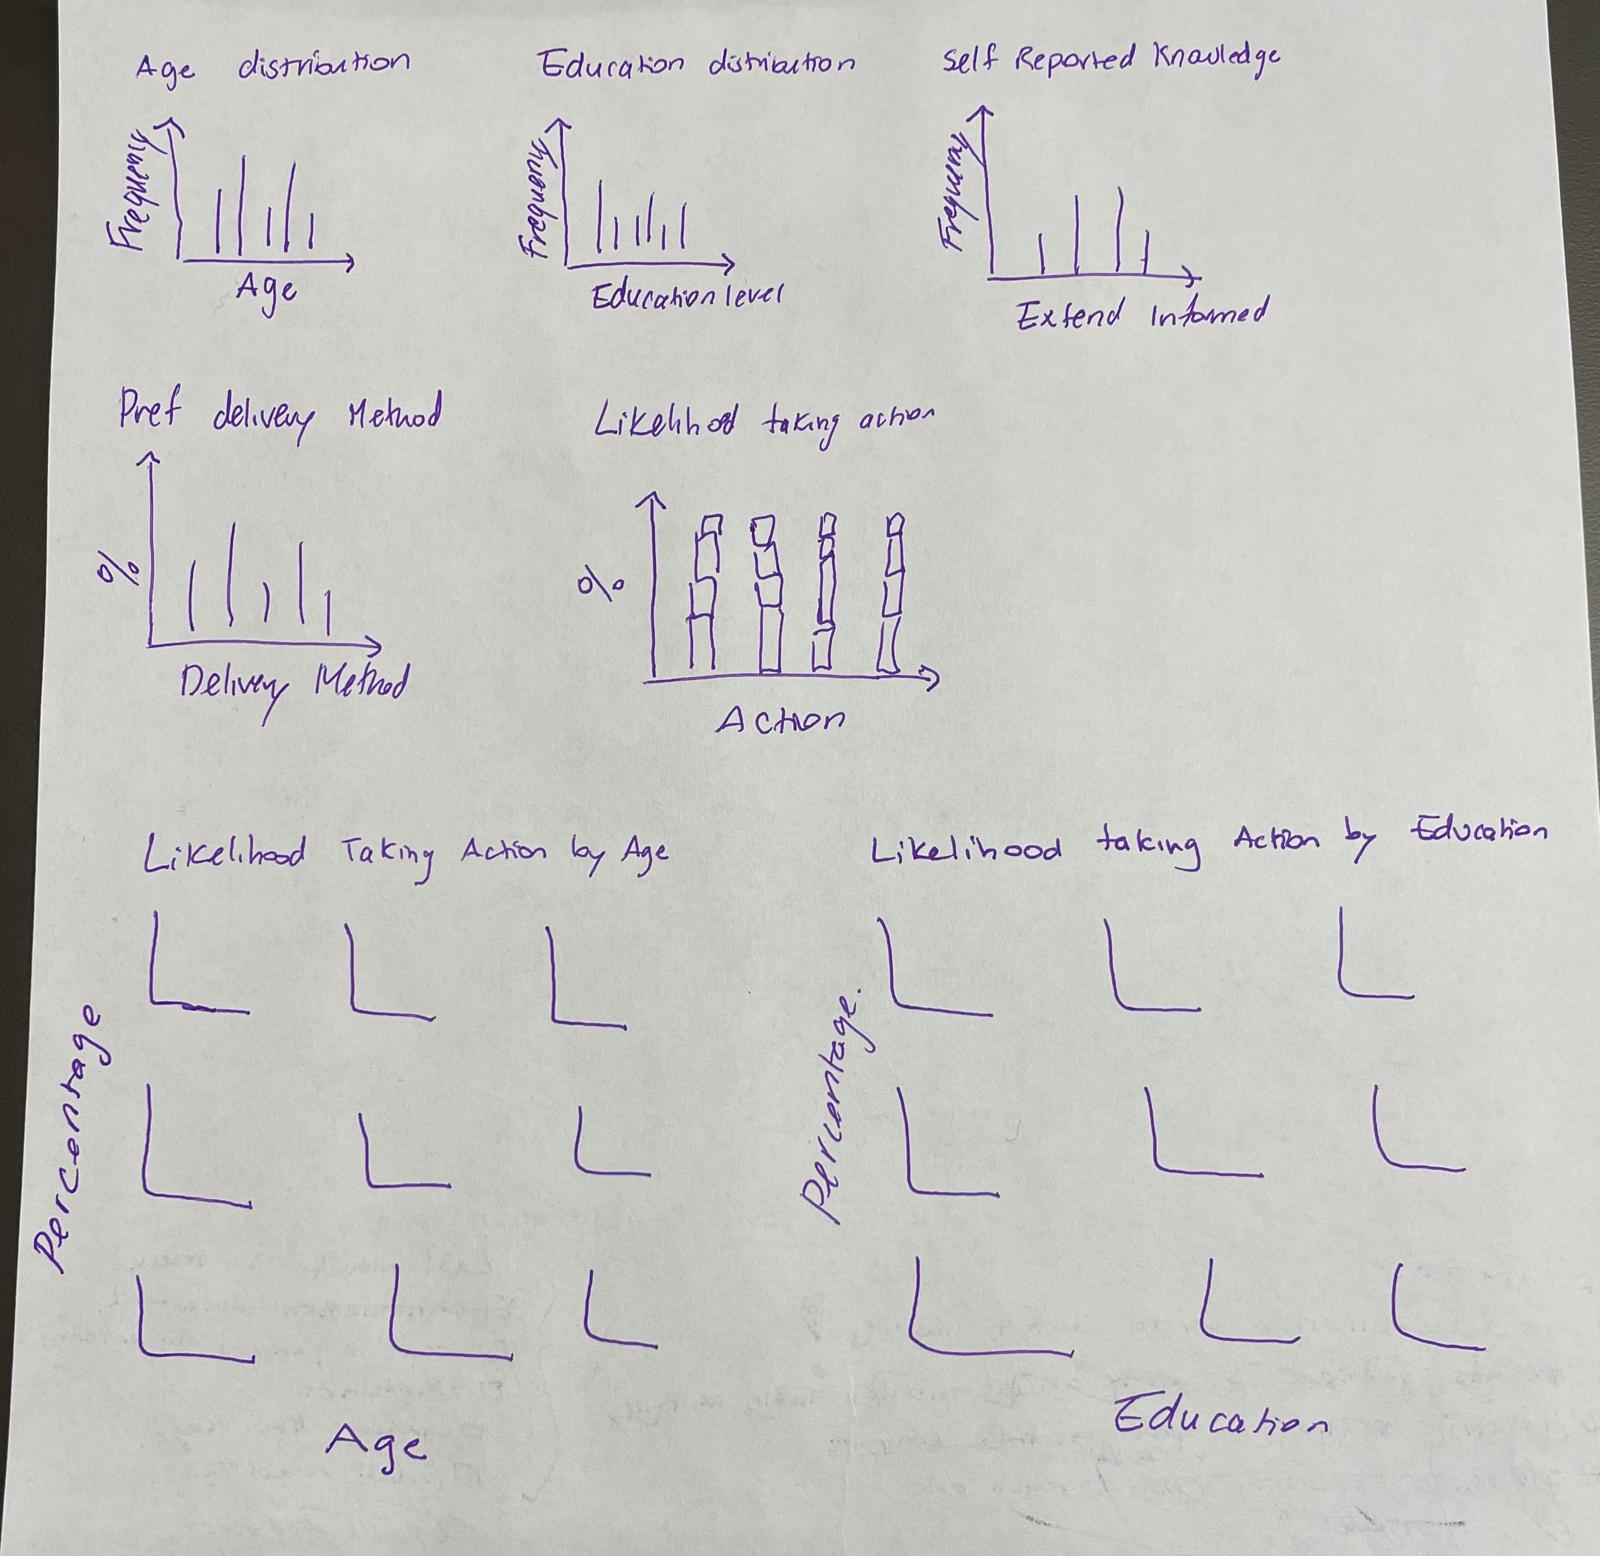 Age distribution
Frequency
Age
Education distribution
Frequency
Education level
Self Reported Knowledge
Frequency
Extend Informed
Pref delivery Method
%
Delivery Method
Likelihhod taking action
%
Action
Likelihood Taking Action by Age
Percentage
Age
Likelihood taking Action by Education
Percentage.
Education